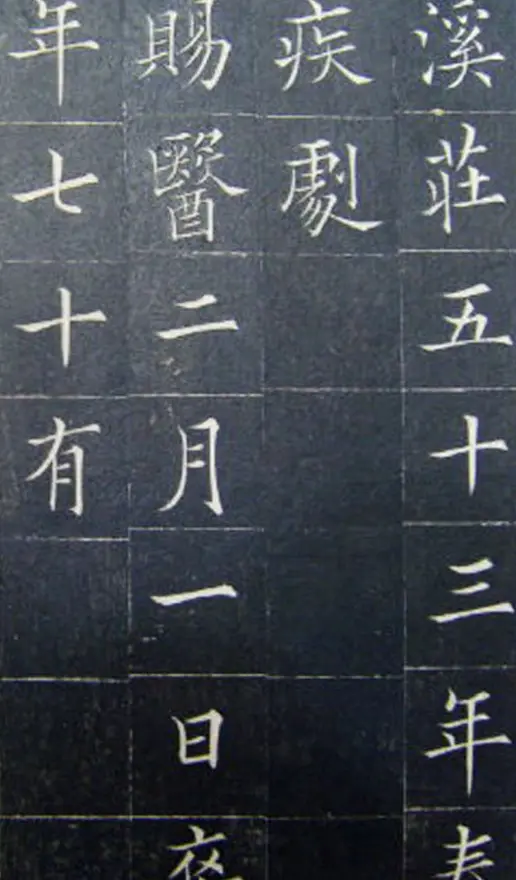 溪莊五十三年
疾劇
賜醫二月一日卒
年七十有